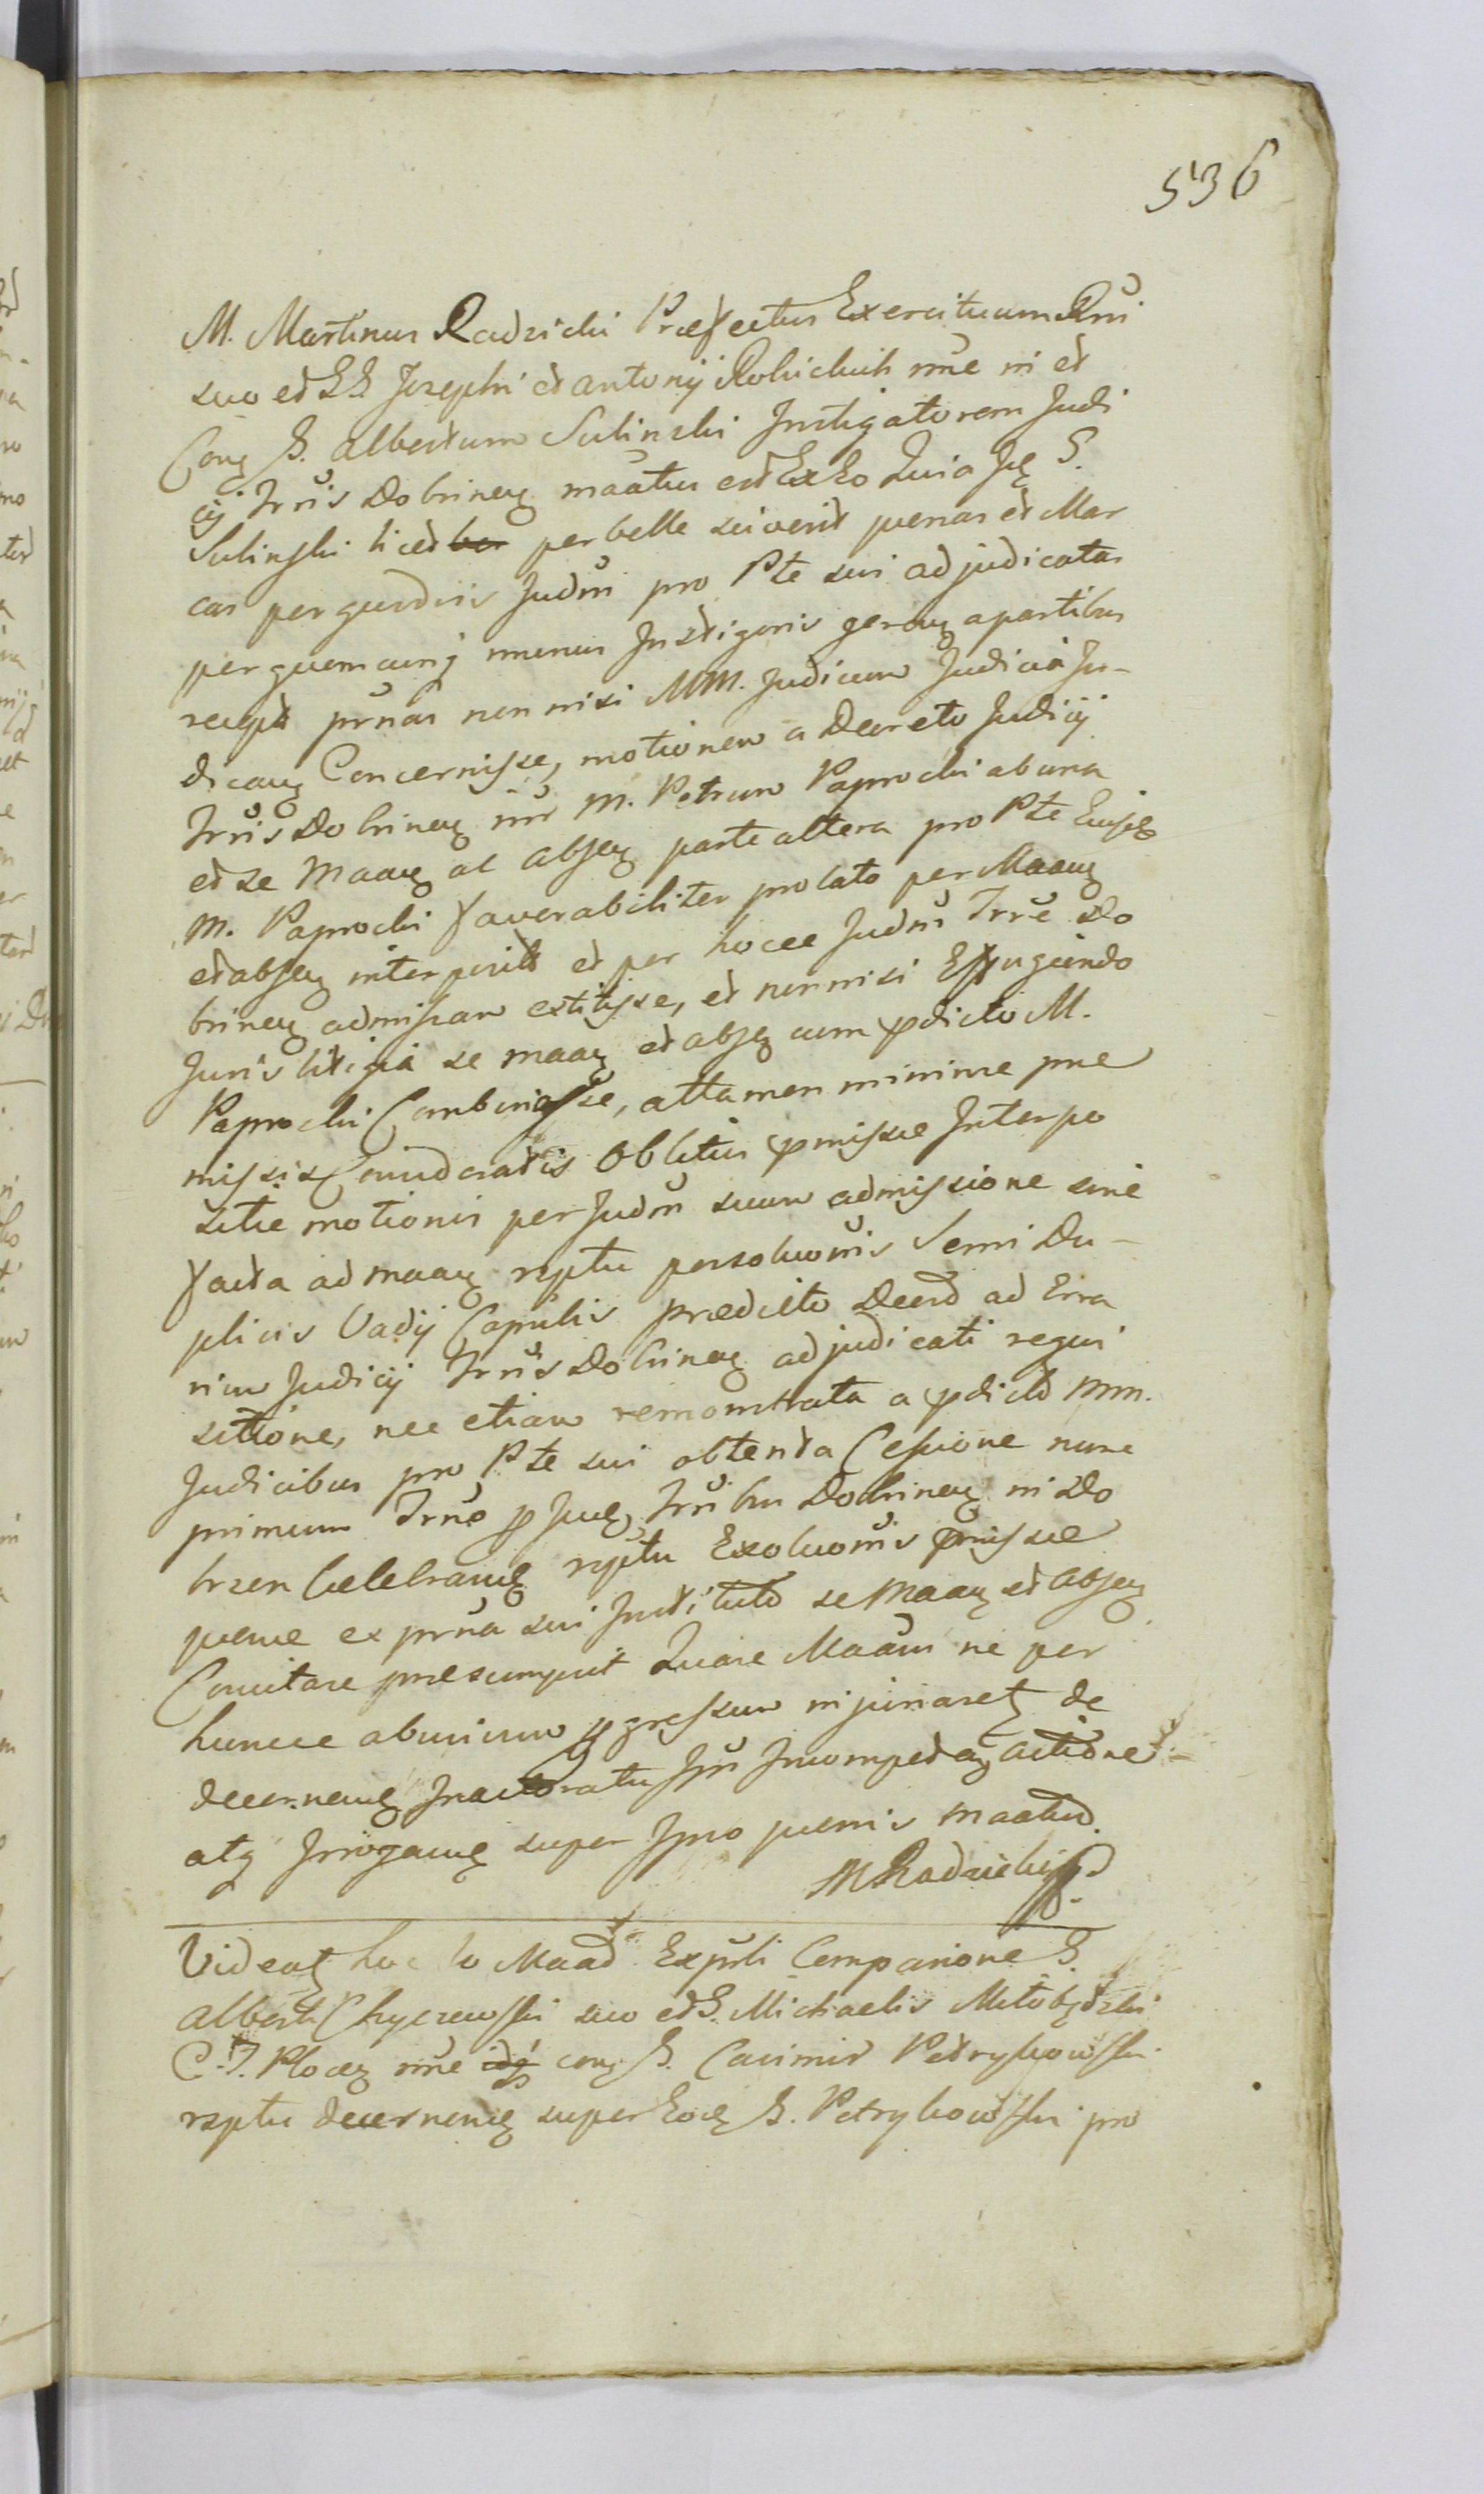 536
M. Martinus Radzicki Præfectus Exercituum Rni
suo et GG Josephi et Antonij Rokickich nne in et
Cong G. Albertum Sulinski Instigatorem Judi
cij Trris Dobrineñ maãtus est Ex Eo Quia Jls G.
Sulinski licet perbelle sciverit pœnas et Mar
cas per quodvis Judm pro Pte sui adjudicatas
per quemcunq munus Instigoris gereñ a partibus
recept prnas non nisi MM. Judicum Judicia Ju-
dicañ Concernisse, motionem a Decreto Judicij
Trris Dobrineñ inr M. Petrum Paprocki ab una
et se Maañ ac Absen parte altera pro Pte Ejusd
M. Paprocki favorabiliter prolato per Maañ
et absen interposit et per hocce Judm Trre Do
brineñ admissam extitisse, et non nisi Effugiendo
Juris litigia se maañ et absen cum pdicto M.
Paprocki Combinasse, attamen minime præ
missis Considcratis Oblitus pmissæ Interpo
sitæ motionis per Judm suum admissione sine
facta ad maañ rsptu persolvonis Semi Du-
plicis Vadij Capulis prædicto Decrd ad Erra
rium Judicij Trris Dobrineñ adjudicati requi
sitione, nec etiam remonstrata a pdictis MM.
Judicibus pro Pte sui obtenta Cessione nunc
primum Trno p Judm Trri bus Dobrineñ in Do
brzen Celebrand rsptu Exolvonis pmissæ
pœnæ ex prna sui Instituto se Maañ et Absen
Convitare præsumpsit Quare Maãns ne per
huncce abusivum pgressum injuriaret de
decernend Inactoratu Ipsi Incompetañ actione
atq Irrogand super Ipso pœnis maatur.
MRadzicki mp
Videat hoc lo Maãd Expsti Comparione G.
Alberti Chyczewski suo et G. Michaelis Miłobędzki
C. T. Plocen nne cong G. Casimir Petrykowski
rsptu decernend super Eod G. Petrykowski pro